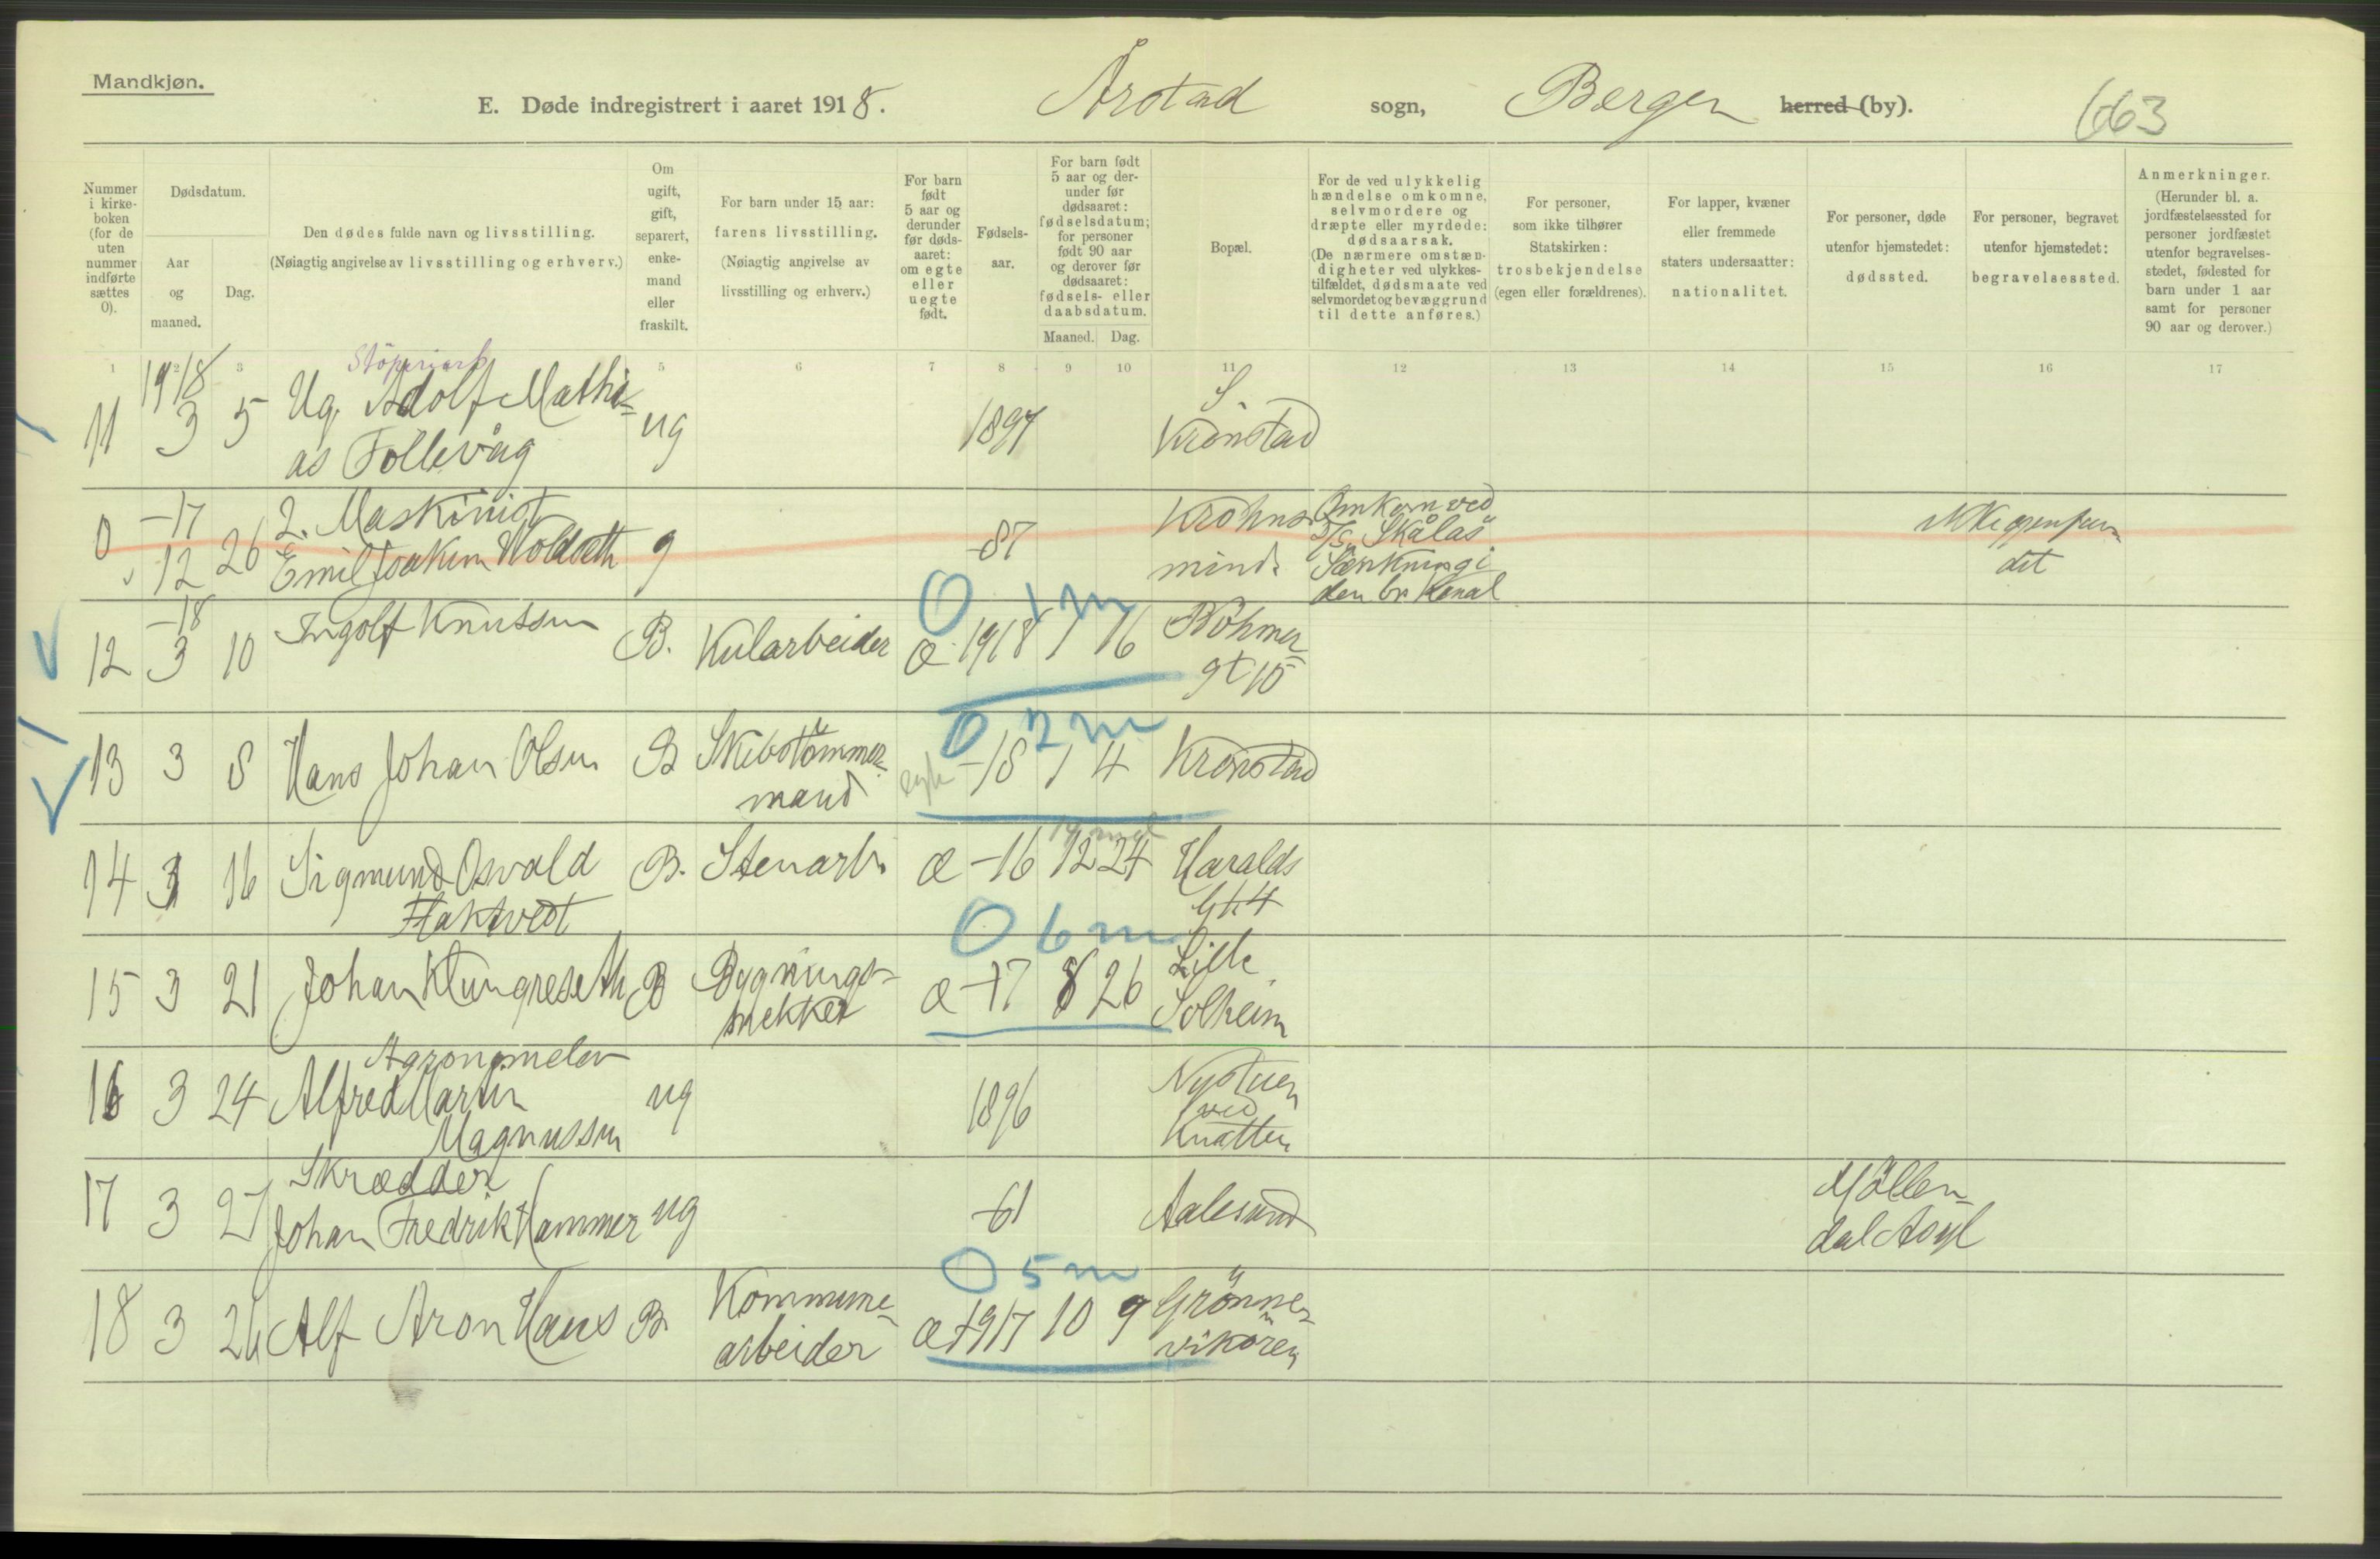 Mandkjøn.
E. Døde indregistrert i aaret 1918. Årstad sogn, Bergen herred (by). 663
Nummer
i kirke-
boken
(for de
uten
nummer
indførte
sættes
0).
Dødsdatum.
Aar
og
maaned.
Dag.
Den dødes fulde navn og livsstilling.
(Nøiagtig angivelse av livsstilling og erhverv.)
Om
ugift,
gift,
separert,
enke-
mand
eller
fraskilt.
For barn under 15 aar:
farens livsstilling.
(Nøiagtig angivelse av
livsstilling og erhverv.)
For barn
født
5 aar og
derunder
før døds-
aaret:
om egte
eller
uegte
født.
Fødsels-
aar.
For barn født
5 aar og der-
under før
dødsaaret:
fødselsdatum;
for personer
født 90 aar
og derover før
dødsaaret:
fødsels- eller
daabsdatum.
Maaned. Dag.
Bopæl.
For de ved ulykkelig
hændelse omkomne,
selvmordere og
dræpte eller myrdede:
dødsaarsak.
(De nærmere omstæn-
digheter ved ulykkes-
tilfældet, dødsmaate ved
selvmordet og bevæggrund
til dette anføres.)
For personer,
som ikke tilhører
Statskirken:
trosbekjendelse
(egen eller forældrenes).
For lapper, kvæner
eller fremmede
staters undersaatter:
nationalitet.
For personer, døde
utenfor hjemstedet:
dødssted.
For personer, begravet
utenfor hjemstedet:
begravelsessted.
Anmerkninger.
(Herunder bl. a.
jordfæstelsessted for
personer jordfæstet
utenfor begravelses-
stedet, fødested for
barn under 1 aar
samt for personer
90 aar og derover.)
1 2 3 5 6 7 8 9 10 11 12 13 14 15 16 17
1918
11 3 5 Ug. Adolf Mathi-
as Follevåg
ug 1897 S.
Kronstad
0 -17
12 26 2. Maskinist
Emil Joakim Woldseth
g -87 Krohns
minde
Omkom ved
D/S. "Skålas"
Sænkning i
den br. Kanal
ikke gjenfun-
det
0 1 m
12 -18
3 10 Ingolf Knutsen B. Kularbeider æ 1918 1 16 Böhmer
gt 10
0 2 m
13 3 8 Hans Johan Olsen B Skibstömmer-
mand
egte -18 1 4 Kronstad
14 3 16 Sigmund Osvald
Flaktvedt
B. Stenarb. æ -16 12 24 Haralds
gt. 4
0 6 m
15 3 21 Johan Klungreseth B Bygnings-
snekker
æ -17 8 26 Lille
Solheim
16 3 24
Alfred Martin
Magnussen
ug 1896 Nystuen
ved
Knatten
17 3 27 Skrædder
Johan Fredrik Hammer
ug -61 Aalesund Möllen-
dal Asyl
0 5 m
18 3 26 Alf Aron Haus B Kommune-
arbeider
æ 1917 10 9 Grönne-
viksören